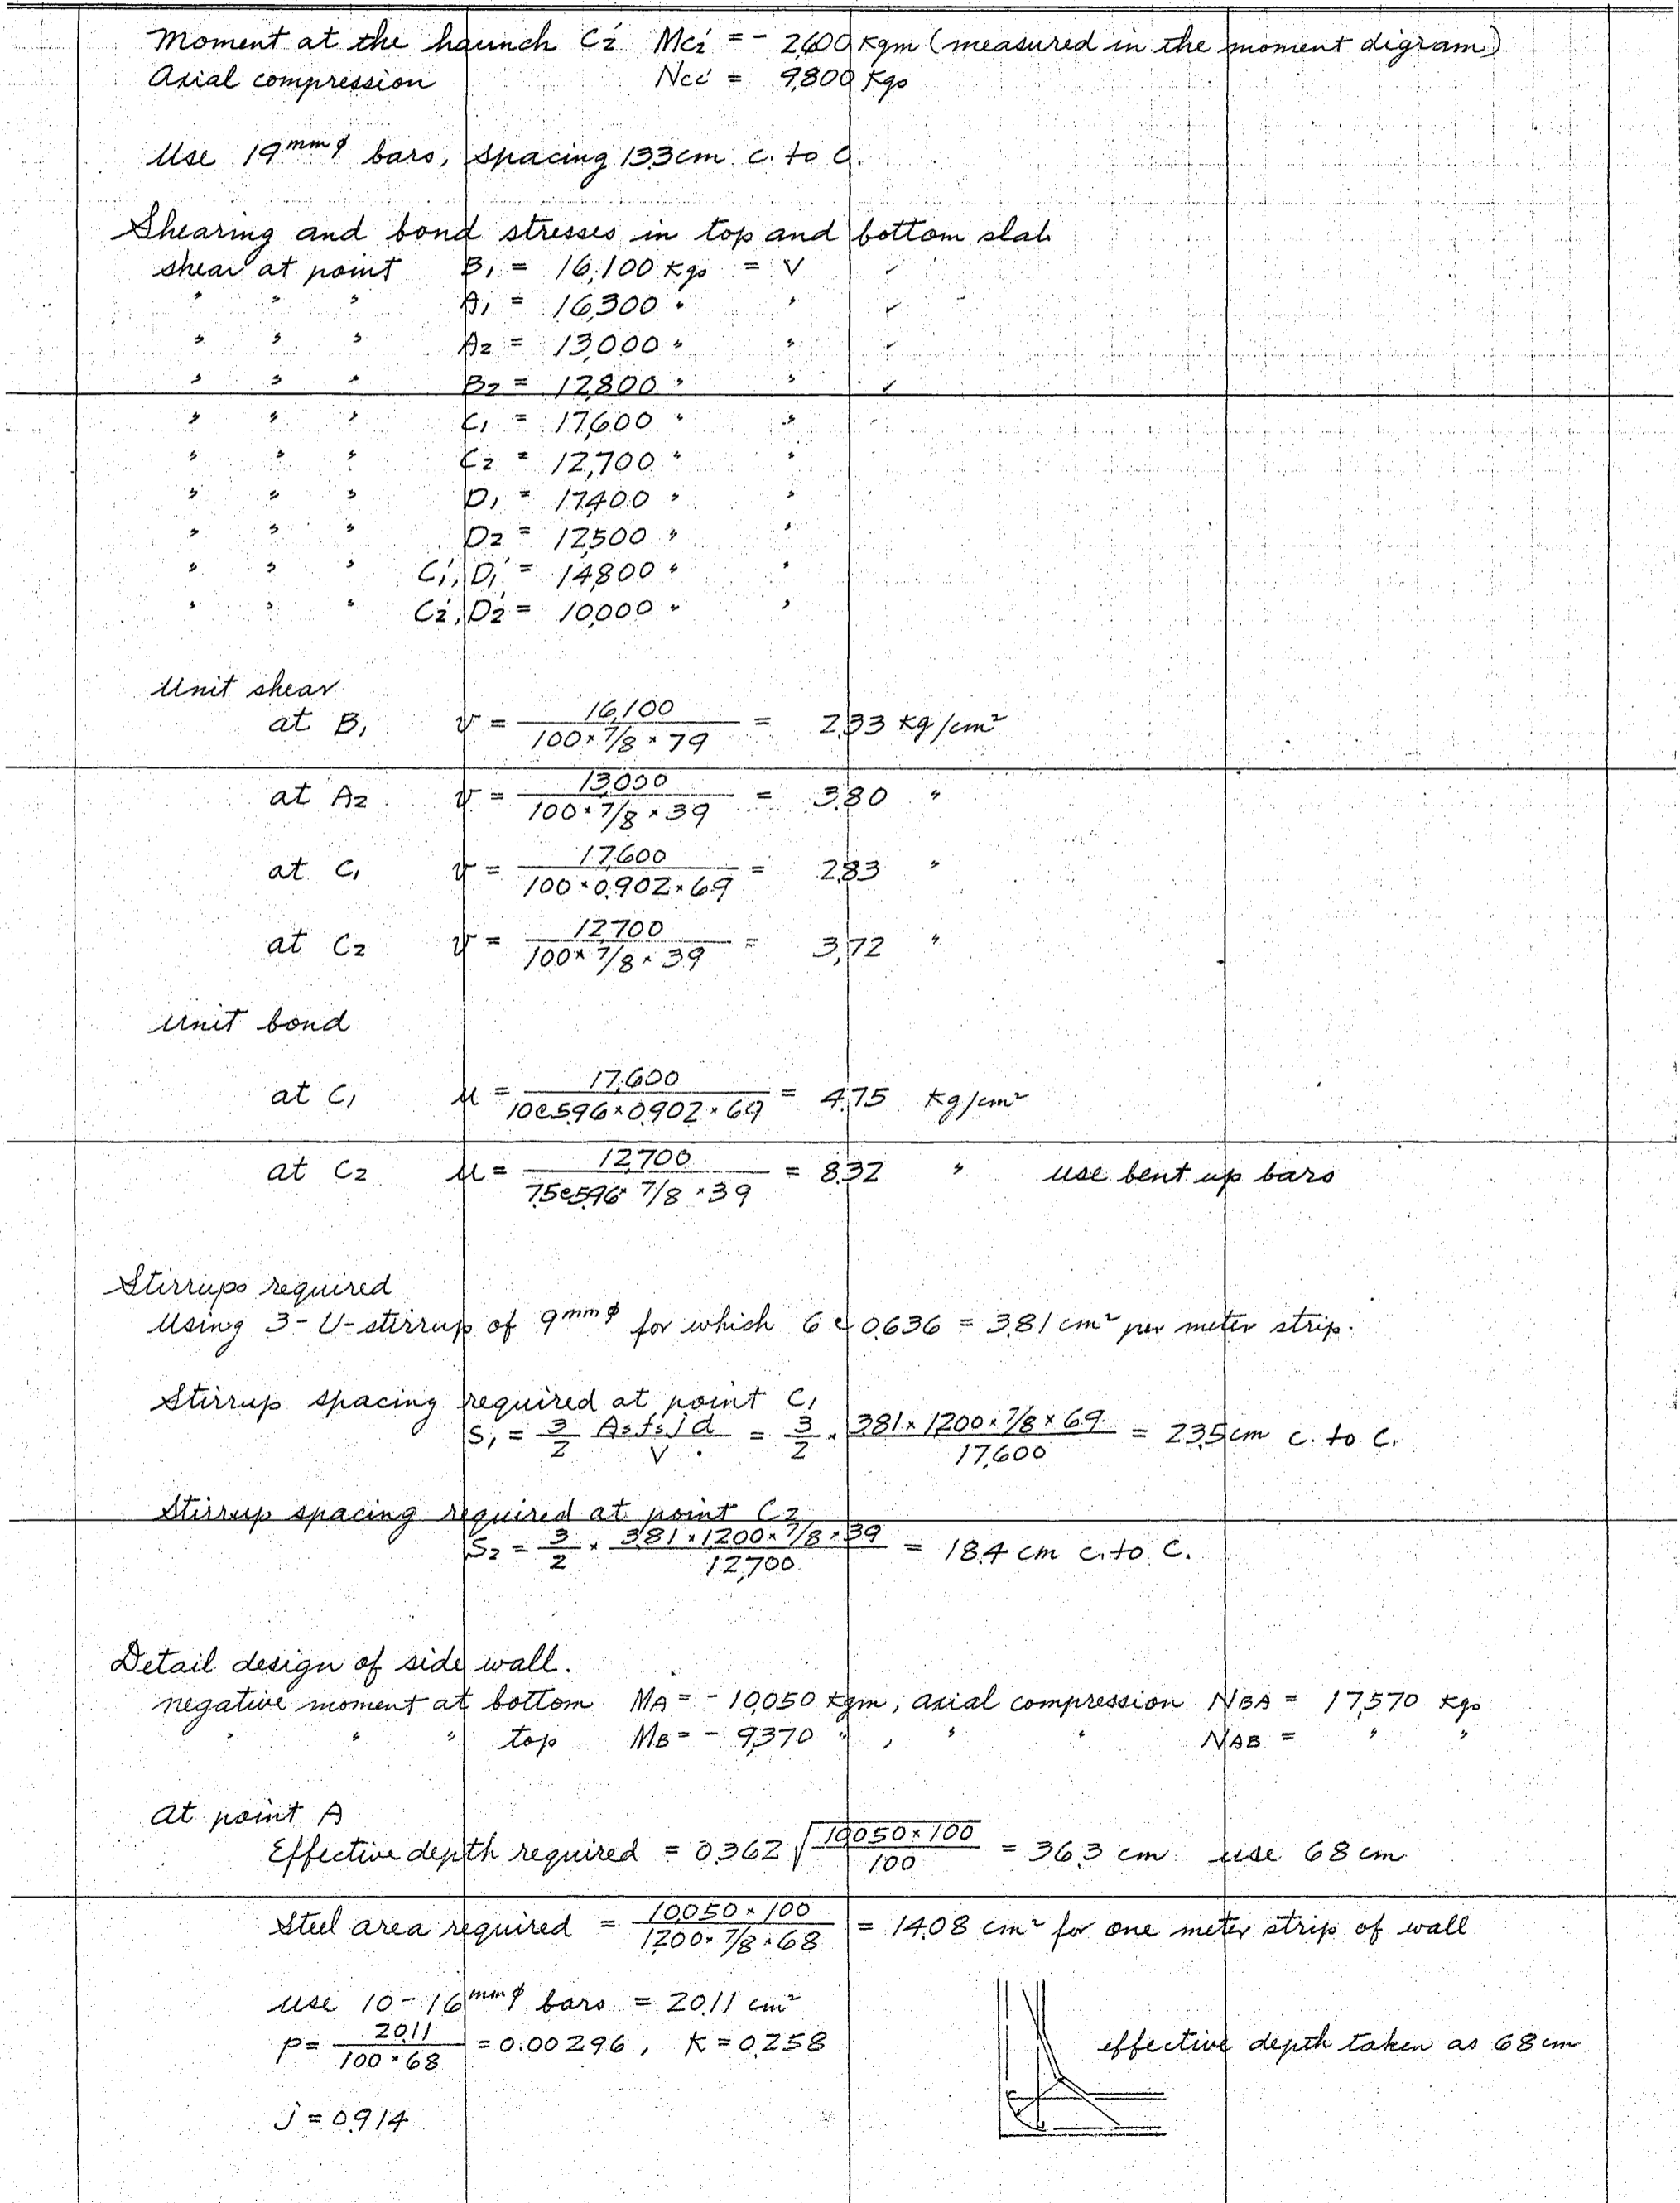 Moment at the haunch C2' Mc2' = - 2,600 Kgm (measured in the moment digram)
Axial compression Ncc' = 9,800 Kgs
Use 19mmφ bars, spacing 13.3cm c. to c.
Shearing and bond stresses in top and bottom slab
shear at point B1 = 16,100 Kgs = V ✓
" " " A1 = 16,300 " " ✓
" " " A2 = 13,000 " " ✓
" " " B2 = 12,800 " " ✓
" " " C1 = 17,600 " "
" " " C2 = 12,700 " "
" " " D1 = 17,400 " "
" " " D2 = 12,500 " "
" " " C1', D1' = 14,800 " "
" " " C2', D2' = 10,000 " "
Unit shear
at B1 v = 16,100 / (100 × 7/8 × 79) = 2.33 Kg/cm²
at A2 v = 13,000 / (100 × 7/8 × 39) = 3.80 "
at C1 v = 17,600 / (100 × 0.902 × 69) = 2.83 "
at C2 v = 12,700 / (100 × 7/8 × 39) = 3.72 "
Unit bond
at C1 u = 17,600 / (10@5.96 × 0.902 × 69) = 4.75 Kg/cm²
at C2 u = 12,700 / (7.5@5.96 × 7/8 × 39) = 8.32 " use bent up bars
Stirrups required
Using 3-U-stirrup of 9mmφ for which 6 @ 0.636 = 3.81 cm² per meter strip.
Stirrup spacing required at point C1
S1 = 3/2 As fs j d / V = 3/2 × 3.81 × 1200 × 7/8 × 69 / 17,600 = 23.5cm c. to c.
Stirrup spacing required at point C2
S2 = 3/2 × 3.81 × 1,200 × 7/8 × 39 / 12,700 = 18.4 cm c. to c.
Detail design of side wall.
negative moment at bottom MA = - 10,050 Kgm, axial compression NBA = 17,570 Kgs
" " " top MB = - 9,370 " , " " NAB = " "
At point A
Effective depth required = 0.362 √(10050 × 100 / 100) = 36.3 cm use 68 cm
Steel area required = 10,050 × 100 / (1,200 × 7/8 × 68) = 14.08 cm² for one meter strip of wall
use 10-16mmφ bars = 20.11 cm²
p = 20.11 / (100 × 68) = 0.00296, K = 0.258
effective depth taken as 68cm
j = 0.914